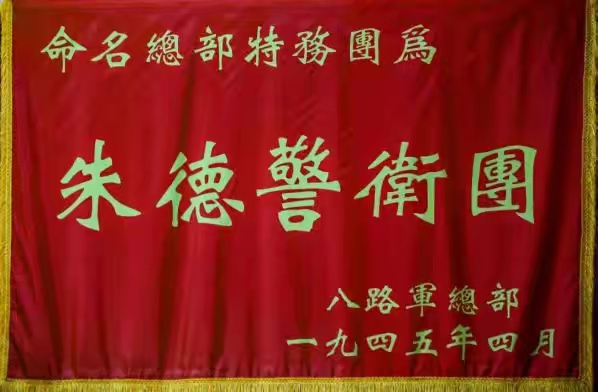 命名總部特務團爲
朱德警衛團
八路軍總部
一九四五年四月